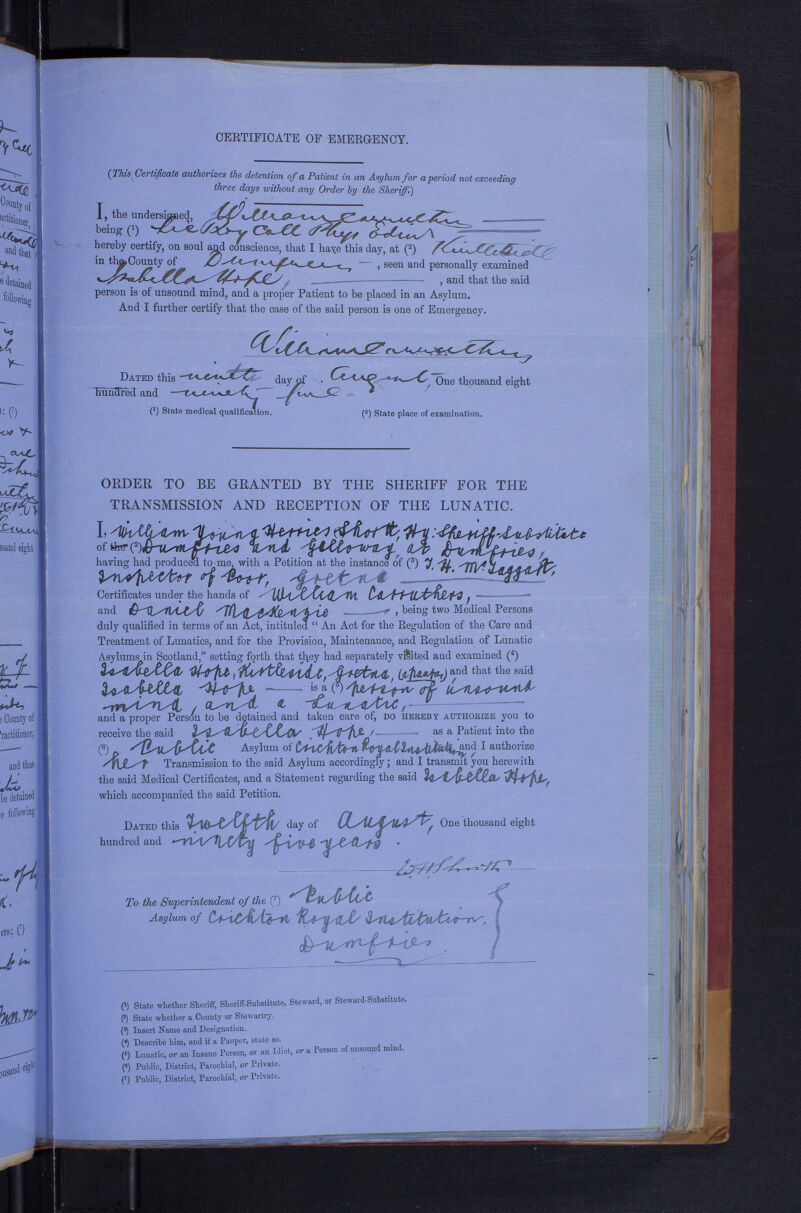 CERTIFICATE OF EMERGENCY.
(This Certificate authorizes the detention of a Patient in an Asylum for a period not exceeding
three days without any Order by the Sheriff.)
I, the undersigned, William Carruthers
being (¹) Lic Roy Coll Phys Edin
hereby certify, on soul and conscience, that I have this day, at (²) Kirtleside
in the County of Dumfries, seen and personally examined
Isabella Hope, and that the said
person is of unsound mind, and a proper Patient to be placed in an Asylum.
And I further certify that the case of the said person is one of Emergency.
William Carruthers
DATED this ninth day of August, One thousand eight
hundred and ninety five
(¹) State medical qualification. (²) State place of examination.
ORDER TO BE GRANTED BY THE SHERIFF FOR THE
TRANSMISSION AND RECEPTION OF THE LUNATIC.
I, William Young Herries Shortt, Hy: Sheriff-Substitute
of the (²) Dumfries and Galloway, at Dumfries,
having had produced to me, with a Petition at the instance of (³) J. H. McTaggart,
Inspector of Poor, Gretna
Certificates under the hands of William Carruthers,
and Daniel MacKenzie, being two Medical Persons
duly qualified in terms of an Act, intituled “An Act for the Regulation of the Care and
Treatment of Lunatics, and for the Provision, Maintenance, and Regulation of Lunatic
Asylums in Scotland,” setting forth that they had separately visited and examined (⁴)
Isabella Hope, Kirtleside, Gretna, (a pauper) and that the said
Isabella Hope is a (⁵) person of unsound
mind, and a Lunatic,
and a proper Person to be detained and taken care of, DO HEREBY AUTHORIZE you to
receive the said Isabella Hope, as a Patient into the
(⁶) Public Asylum of Crichton Royal Institution, and I authorize
her Transmission to the said Asylum accordingly; and I transmit you herewith
the said Medical Certificates, and a Statement regarding the said Isabella Hope,
which accompanied the said Petition.
DATED this Twelfth day of August, One thousand eight
hundred and ninety five years.
WYHShortt
To the Superintendent of the (⁷) Public
Asylum of Crichton Royal Institution.
Dumfries.
(¹) State whether Sheriff, Sheriff-Substitute, Steward, or Steward-Substitute.
(²) State whether a County or Stewartry.
(³) Insert Name and Designation.
(⁴) Describe him, and if a Pauper, state so.
(⁵) Lunatic, or an Insane Person, or an Idiot, or a Person of unsound mind.
(⁶) Public, District, Parochial, or Private.
(⁷) Public, District, Parochial, or Private.